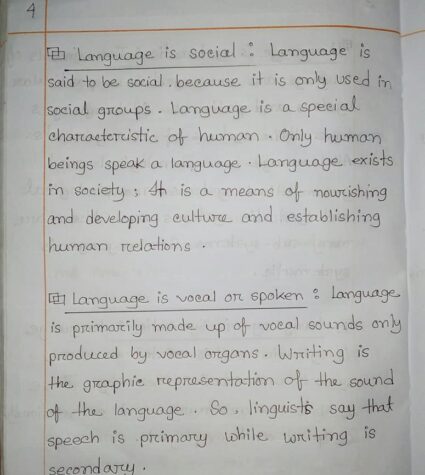 4
Language is social : Language is
said to be social, because it is only used in
social groups. Language is a special
characteristic of human. Only human
beings speak a language. Language exists
in society; It is a means of nourishing
and developing culture and establishing
human relations.
Language is vocal or spoken : Language
is primarily made up of vocal sounds only
produced by vocal organs. Writing is
the graphic representation of the sound
of the language. So, linguists say that
speech is primary while writing is
secondary.